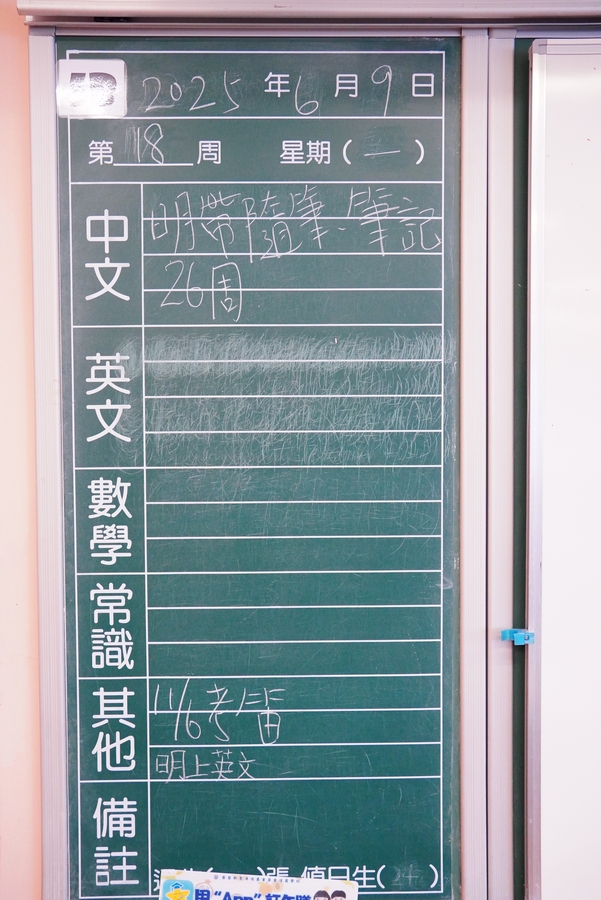 5D 2025 年 6 月 9 日
第 18 周 星期 ( 一 )
中文
明帶隨筆、筆記
26周
英文
數學
常識
其他
11/6 考
明上英文
備註
)張 值日生( 24 )
"App"